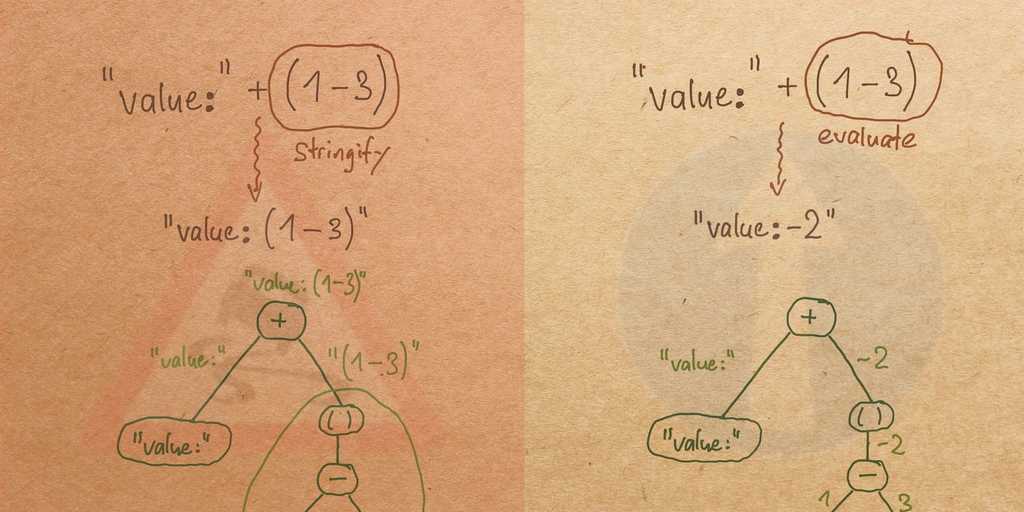 "value:" + (1-3)
stringify
"value: (1-3)"
"value: (1-3)"
+
"value:"
"(1-3)"
"value:"
()
-
"value:" + (1-3)
evaluate
"value:-2"
+
"value:"
-2
"value:"
()
-2
-
1
3